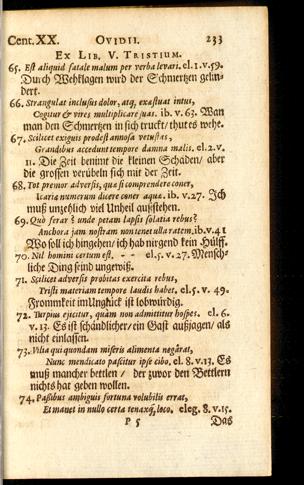 Cent. XX. OVIDII. 233
EX LIB. V. TRISTIUM.
65. Est aliquid fatale malum per verba levari. el.1.v.59.
Durch Wehklagen wird der Schmertzen gelin-
dert.
66. Strangulat inclusus dolor, atq, exæstuat intus,
Cogitur & vires multiplicare suas. ib. v. 63. Wan
man den Schmertzen in sich truckt/ thut es wehe.
67. Scilicet exiguis prodest annosa vetustas,
Grandibus accedunt tempore damna malis. el. 2. v.
11. Die Zeit benimt die kleinen Schaden/ aber
die grossen verübeln sich mit der Zeit.
68. Tot premor adversis, quæ si comprendere coner,
Icariæ numerum dicere coner aquæ. ib. v. 27. Ich
muß unzehlich viel Unheil außstehen.
69. Quò ferar? unde petam lapsis solatia rebus?
Anchora jam nostram non tenet ulla ratem. ib. v. 41
Wo soll ich hingehen/ ich hab nirgend kein Hülff.
70. Nil homini certum est. - - el. 5. v. 27. Mensch-
liche Ding seind ungewiß.
71. Scilicet adversis probitas exercita rebus,
Tristi materiam tempore laudis habet. el. 5. v. 49.
Frommkeit im Unglück ist lobwürdig.
72. Turpius ejicitur, quàm non admittitur hospes. el. 6.
v. 13. Es ist schändlicher/ ein Gast außjagen/ als
nicht einlassen.
73. Vilia qui quondam miseris alimenta negârat,
Nunc mendicato pascitur ipse cibo. el. 8. v. 13. Es
muß mancher bettlen/ der zuvor den Bettlern
nichts hat geben wollen.
74. Passibus ambiguis fortuna volubilis errat,
Et manet in nullo certa tenaxq, loco. eleg. 8. v. 15.
P 5 Das